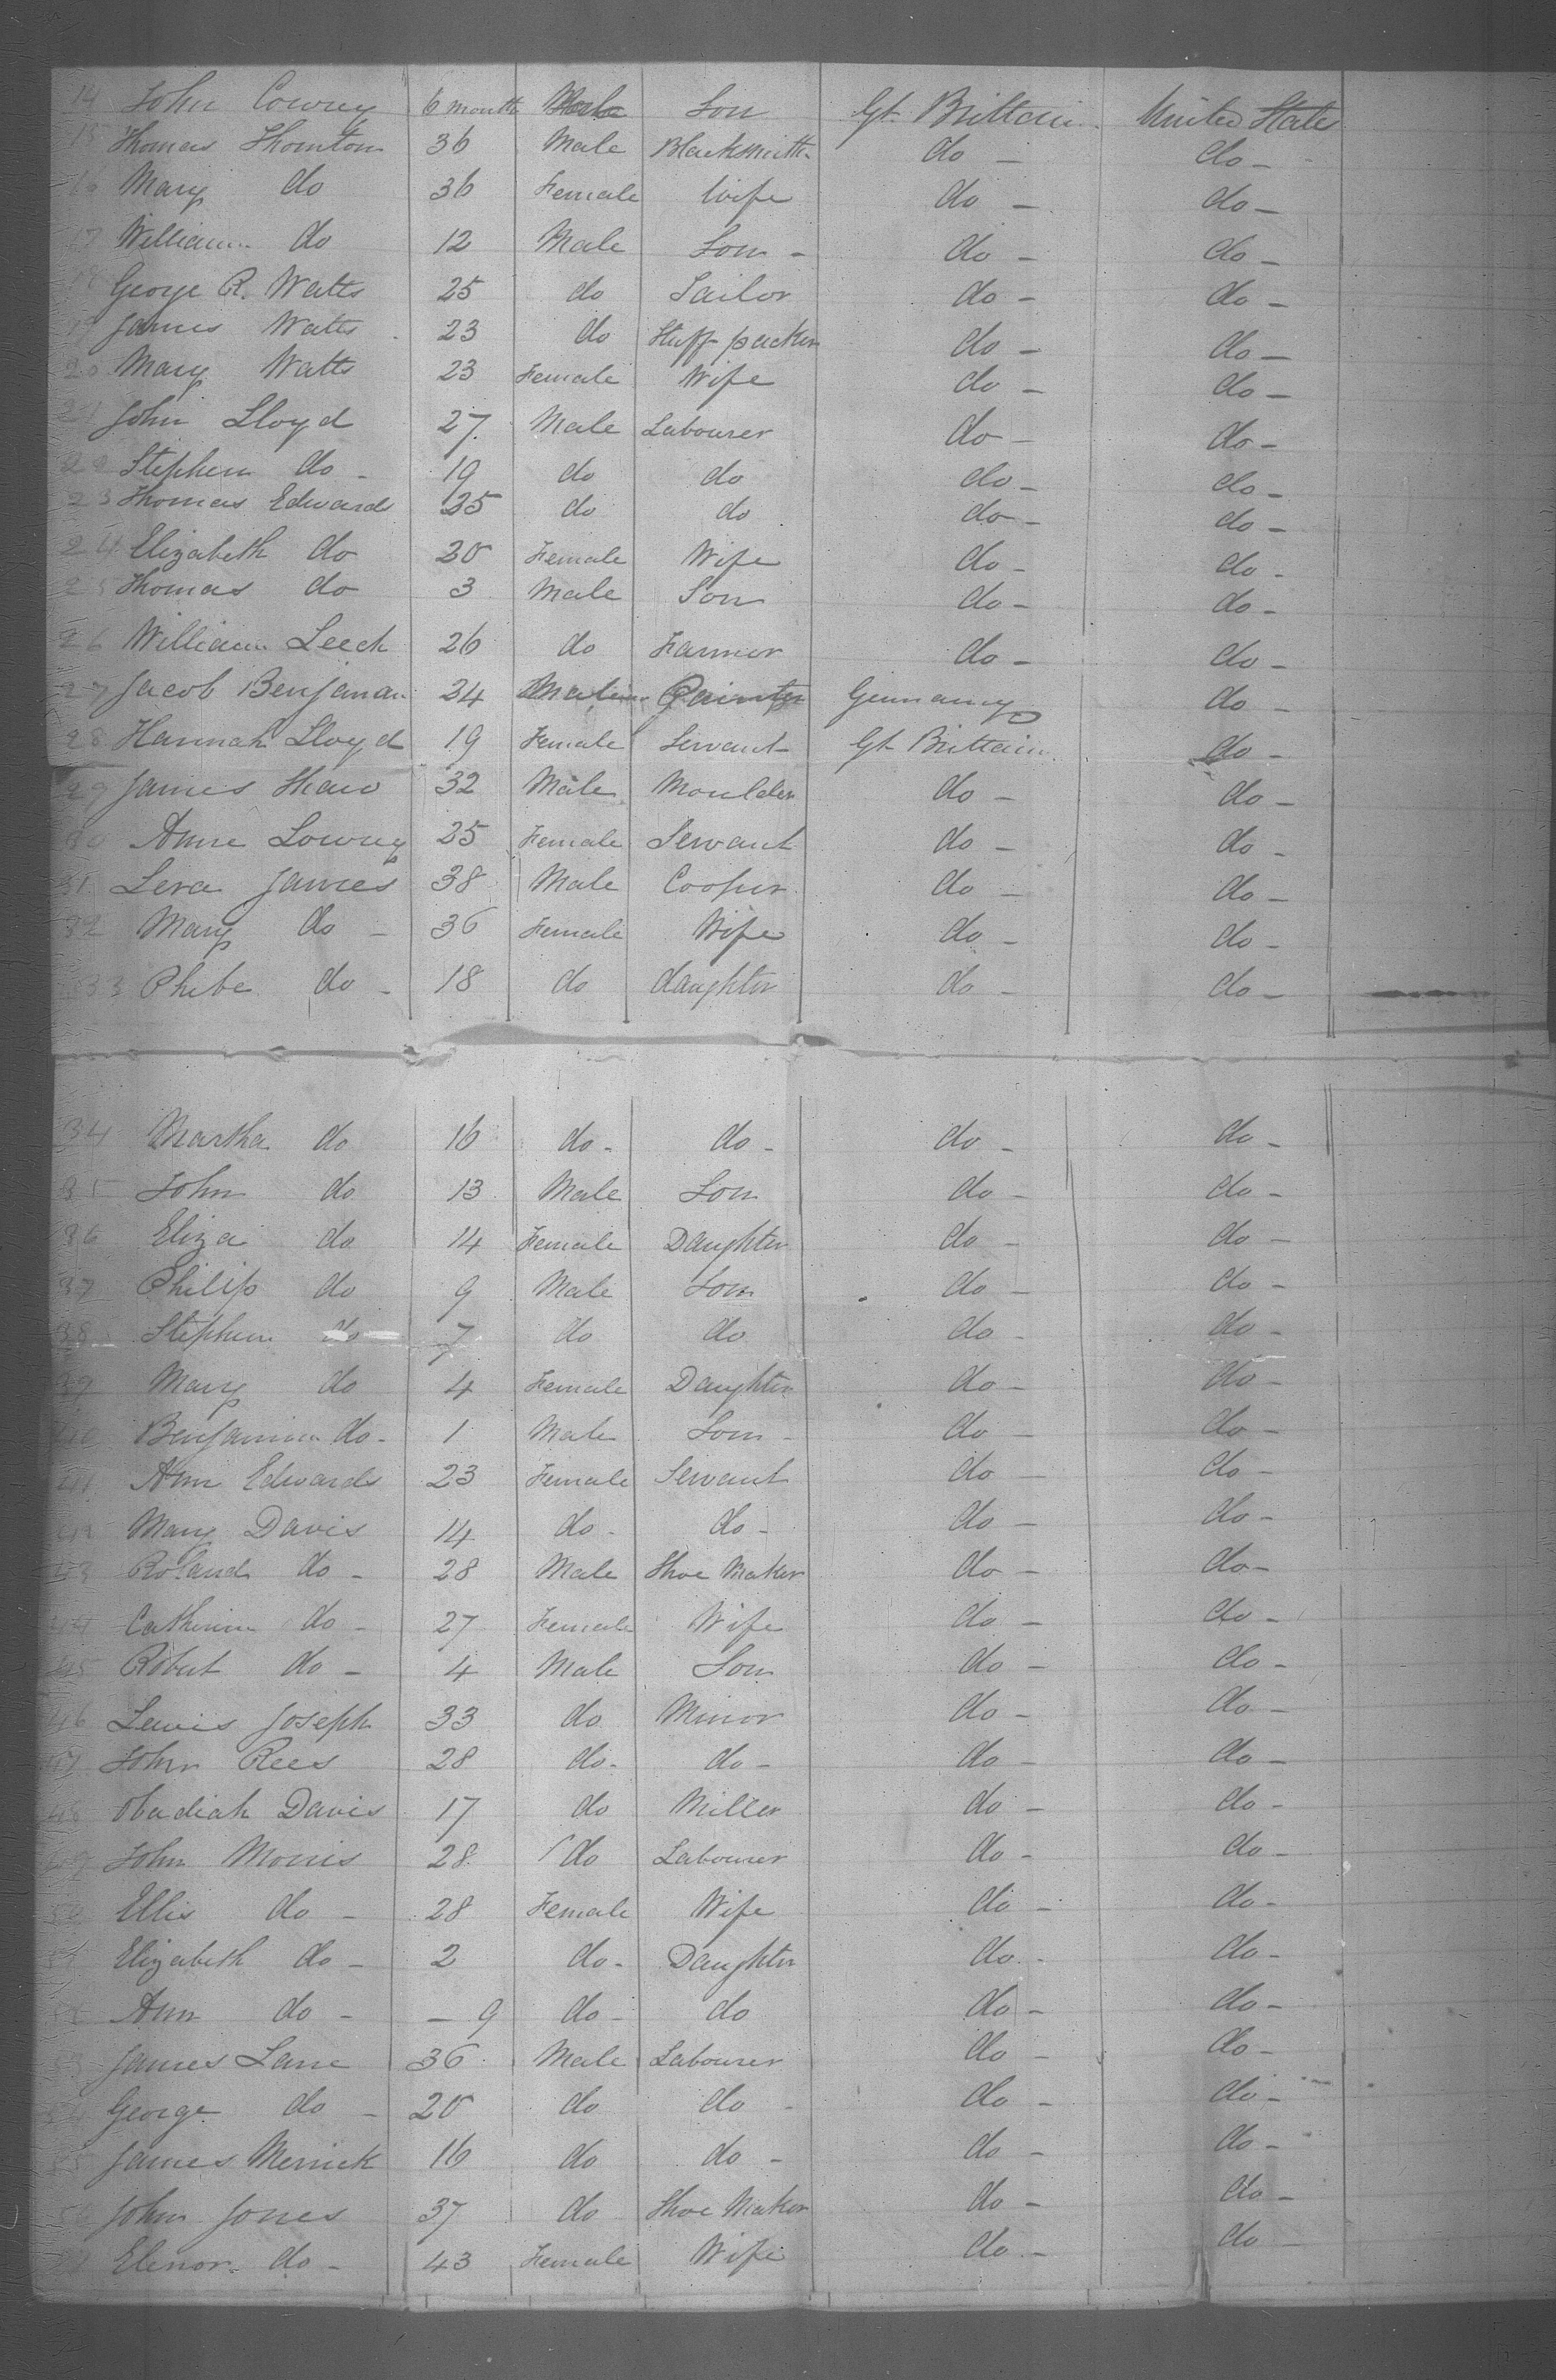 14 John Cowrey 6 month Male Son Gt. Brittain United States
15 Thomas Thornton 36 Male Blacksmith do - do -
16 Mary do 36 Female Wife do - do -
17 William do 12 Male Son - do - do -
18 George R. Watts 25 do Sailor do - do -
19 James Watts 23 do Stuff packer do - do -
20 Mary Watts 23 Female Wife do - do -
21 John Lloyd 27. Male Labourer do - do -
22 Stephen do - 19 do do do - do -
23 Thomas Edwards 25 do do do - do -
24 Elizabeth do 20 Female Wife do - do -
25 Thomas do 3 Male Son do - do -
26 William Leech 26 do Farmor do - do -
27 Jacob Benjaman 24 Male Painter Germany do -
28 Hannah Lloyd 19 Female Servant Gt Brittain do -
29 James Shaw 32 Male Moulder do - do -
30 Anne Lowrey 25 Female Servant do - do -
31 James 38 Male Cooper do - do -
32 Mary do - 36 Female Wife do - do -
33 Phebe do - 18 do daughter do - do -
34 Martha do 16 do - do - do - do -
35 John do 13 Male Son do - do -
36 Eliza do 14 Female Daughter do - do -
37 Philip do 9 Male Son do - do -
38 Stephen do 7 do do do - do -
39 Mary do 4 Female Daughter do - do -
40 Benjamin do - 1 Male Son - do - do -
41 Ann Edwards 23 Female Servant do - do -
42 Mary Davis 14 do - do - do - do -
43 Roland do - 28 Male Shoe Maker do - do -
44 Catherine do - 27 Female Wife do - do -
45 Robert do - 4 Male Son do - do -
46 Lewis Joseph 33 do Minor do - do -
47 John Rees 28 do - do - do - do -
48 Obadiah Davis 17 do Miller do - do -
49 John Morris 28 do Labourer do - do -
50 Ellis do - 28 Female Wife do - do -
51 Elizabeth do - 2 do - Daughter do - do -
52 Ann do - - 9 do - do do - do -
53 James Lane 36 Male Labourer do - do -
54 George do - 20 do do - do - do -
55 James Merrick 16 do do - do - do -
56 John Jones 37 do Shoe Maker do - do -
57 Elenor do - 43 Female Wife do - do -